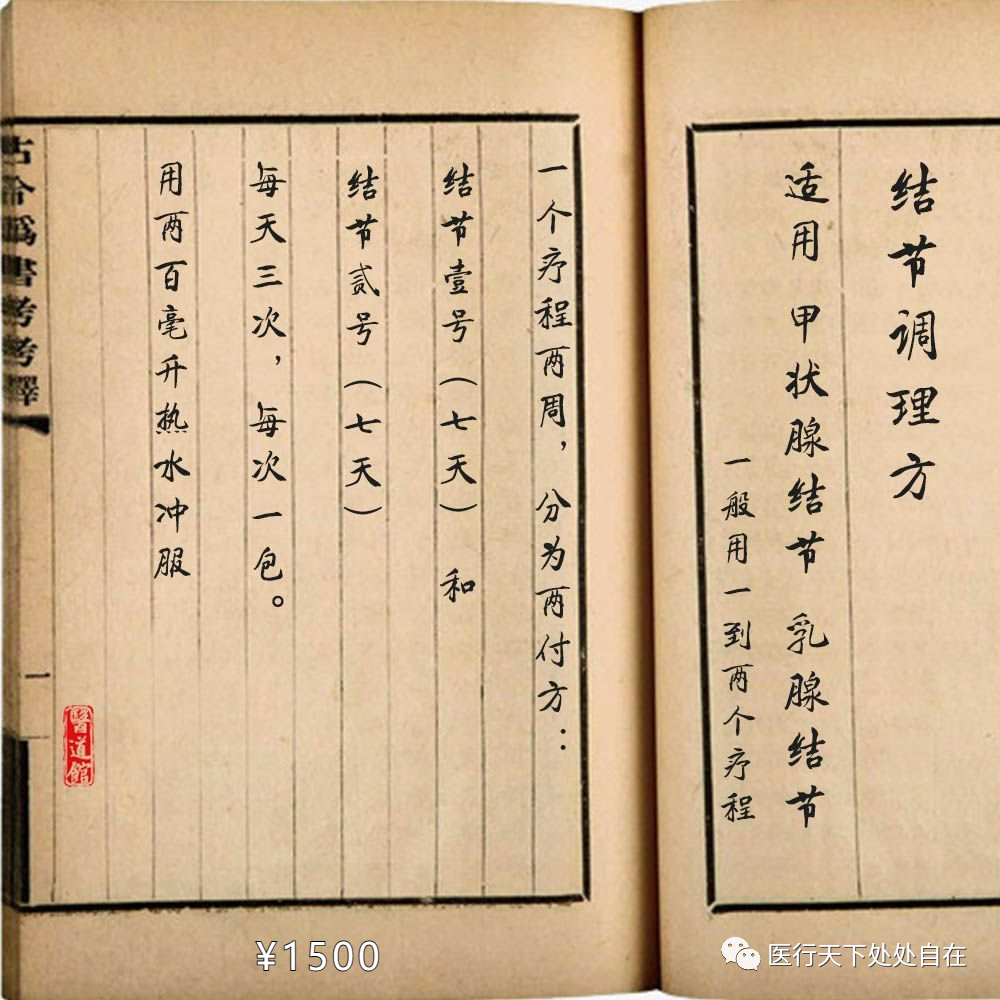 结节调理方
适用 甲状腺结节 乳腺结节
一般用一到两个疗程
一个疗程两周，分为两付方：
结节壹号（七天） 和
结节贰号（七天）
每天三次，每次一包。
用两百毫升热水冲服
古今爲書考考釋
一
醫道館
¥1500
医行天下处处自在